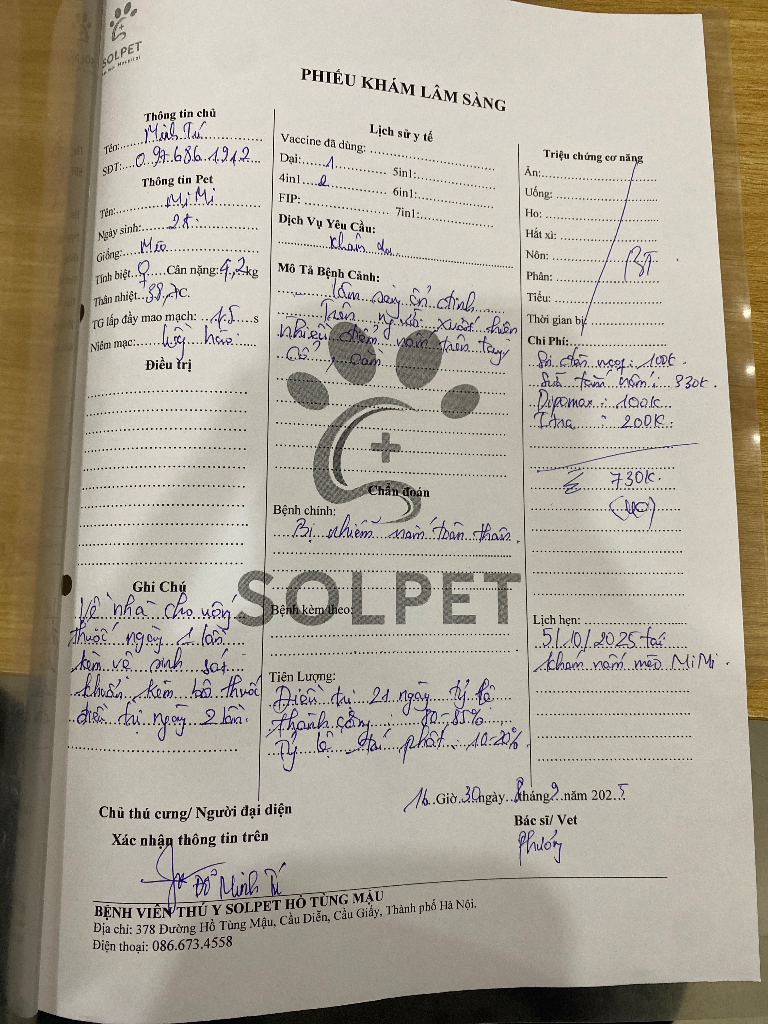 SOLPET
PHIẾU KHÁM LÂM SÀNG
Thông tin chủ
Tên: Minh Tú
SĐT: 097.686.1912
Thông tin Pet
Tên: MiMi
Ngày sinh: 2t
Giống: Mèo
Tính biệt ♀ Cân nặng: 4,2kg
Thân nhiệt: 38,7°C
TG lấp đầy mao mạch: 1.5 s
Niêm mạc: hồng hào
Điều trị
Ghi Chú
Về nhà cho uống
thuốc ngày 1 lần
kèm vệ sinh sát
khuẩn kèm bôi thuốc
điều trị ngày 2 lần.
Lịch sử y tế
Vaccine đã dùng:
Dại: 1 5in1:
4in1 2 6in1:
FIP: 7in1:
Dịch Vụ Yêu Cầu:
Khám da
Mô Tả Bệnh Cảnh:
Lâm sàng ổn định
Trên người xuất hiện
nhiều điểm nấm trên
cổ, cằm
Chẩn đoán
Bệnh chính:
Bị nhiễm nấm toàn thân.
SOLPET
Bệnh kèm theo:
Tiên Lượng:
Điều trị 21 ngày tỷ lệ
thành công: 80-85%
Tỷ lệ tái phát: 10-20%
Triệu chứng cơ năng
Ăn:
Uống:
Ho:
Hắt xì:
Nôn: BT
Phân:
Tiểu:
Thời gian bị:
Chi Phí:
Soi đèn wood: 100k
Sữa tắm nấm: 330k.
100k
Itra: 200k.
730k.
Lịch hẹn:
5/10/2025 tái
khám nấm mèo MiMi.
16 Giờ 30 ngày 8 tháng 9 năm 2025
Chủ thú cưng/ Người đại diện
Xác nhận thông tin trên
Đỗ Minh Tú
Bác sĩ/ Vet
Phương
BỆNH VIỆN THÚ Y SOLPET HỒ TÙNG MẬU
Địa chỉ: 378 Đường Hồ Tùng Mậu, Cầu Diễn, Cầu Giấy, Thành phố Hà Nội.
Điện thoại: 086.673.4558